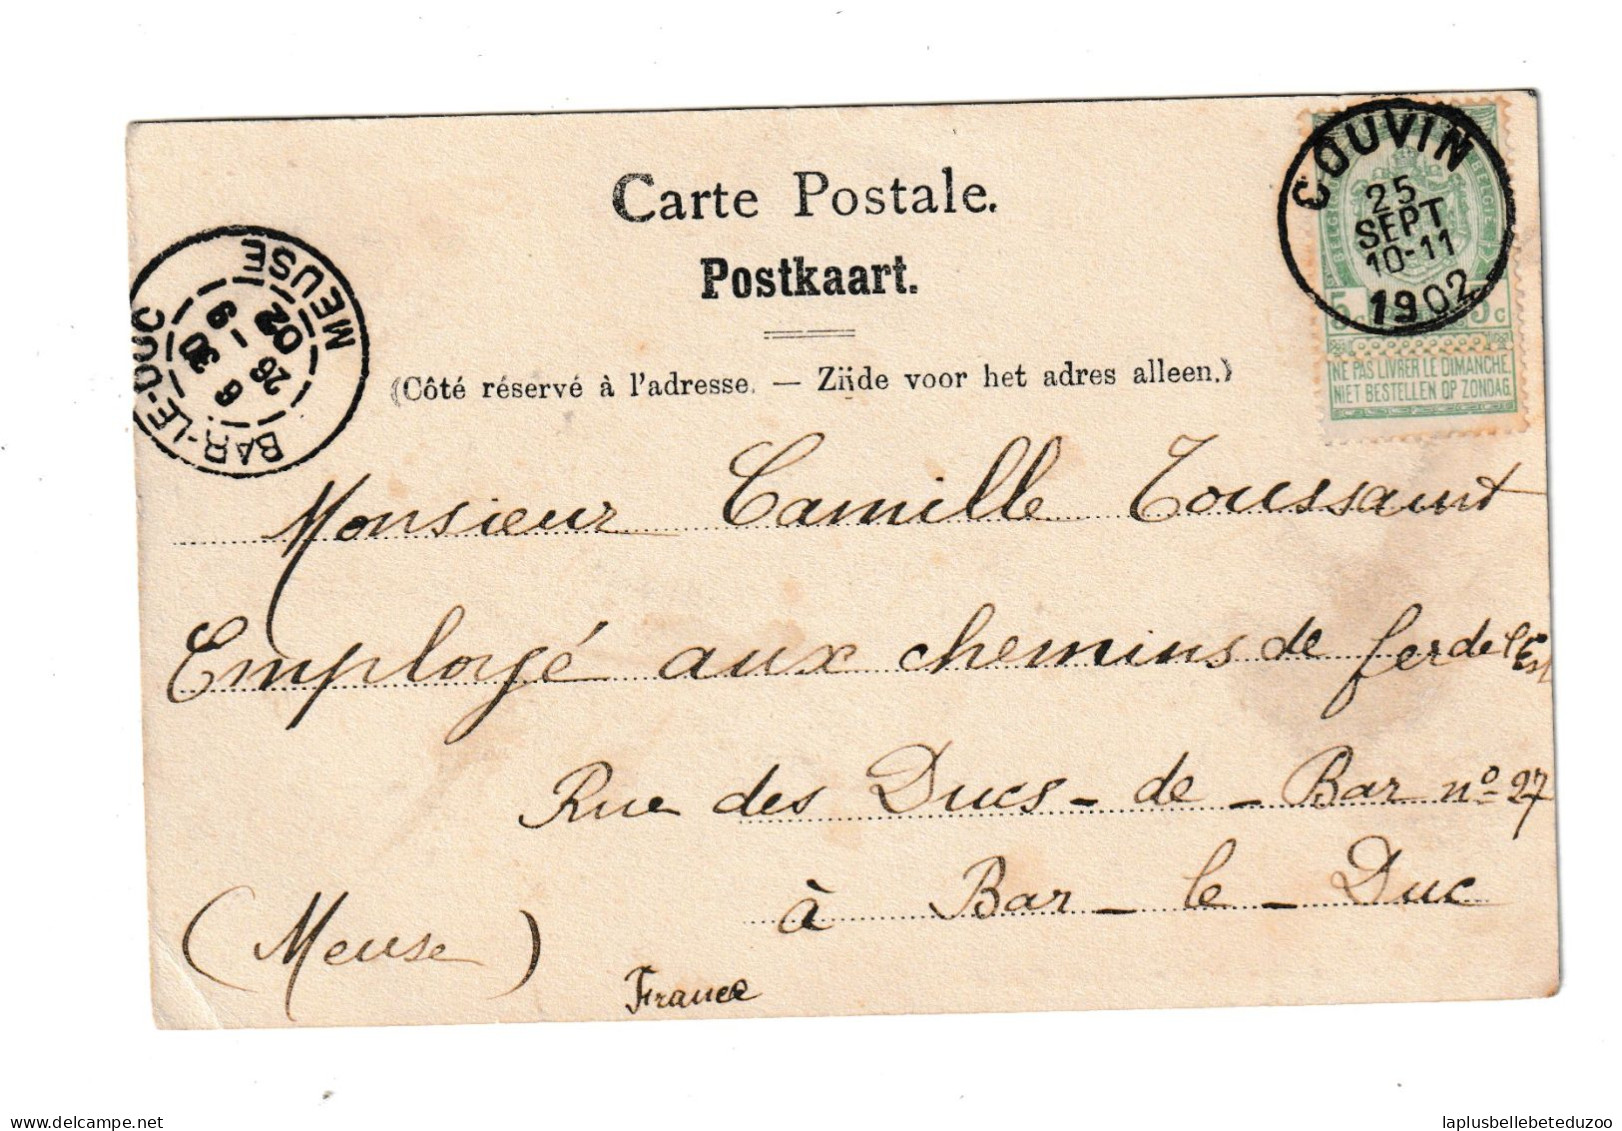 Carte Postale.
Postkaart.
(Côté réservé à l'adresse. — Zijde voor het adres alleen.)
COUVIN
25
SEPT
10-11
1902
BELGIQUE
BELGIË
5c 5c
NE PAS LIVRER LE DIMANCHE.
NIET BESTELLEN OP ZONDAG.
BAR-LE-DUC
8 30
26 - 9
02
MEUSE
Monsieur Camille Toussaint
Employé aux chemins de fer de l'Est
Rue des Ducs-de-Bar nº 27
à Bar-le-Duc
(Meuse)
France
laplusbellebeteduzoo